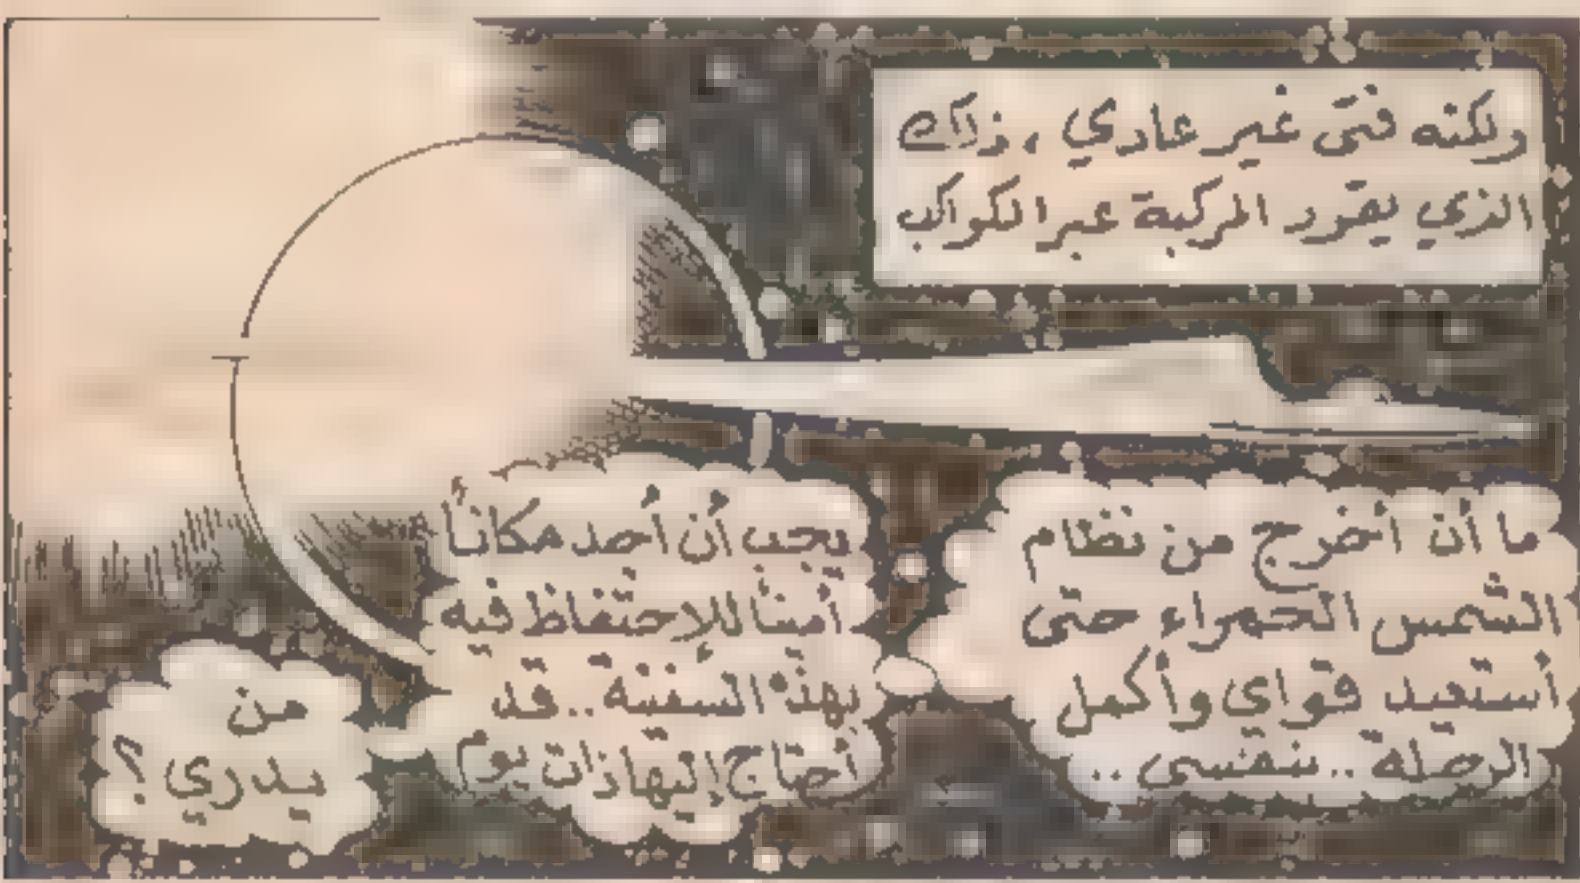 ولكنه فتى غير عادي ، ذلك
الذي يقود المركبة عبر الكواكب
ما أن أخرج من نظام
الشمس الحمراء حتى
أستعيد قواي وأكمل
الرحلة .. بنفسي ..
يجب أن أجد مكاناً
أميناً للإحتفاظ فيه
بهذه السفينة .. قد
أحتاج إليها ذات يوم
من
يدري ؟